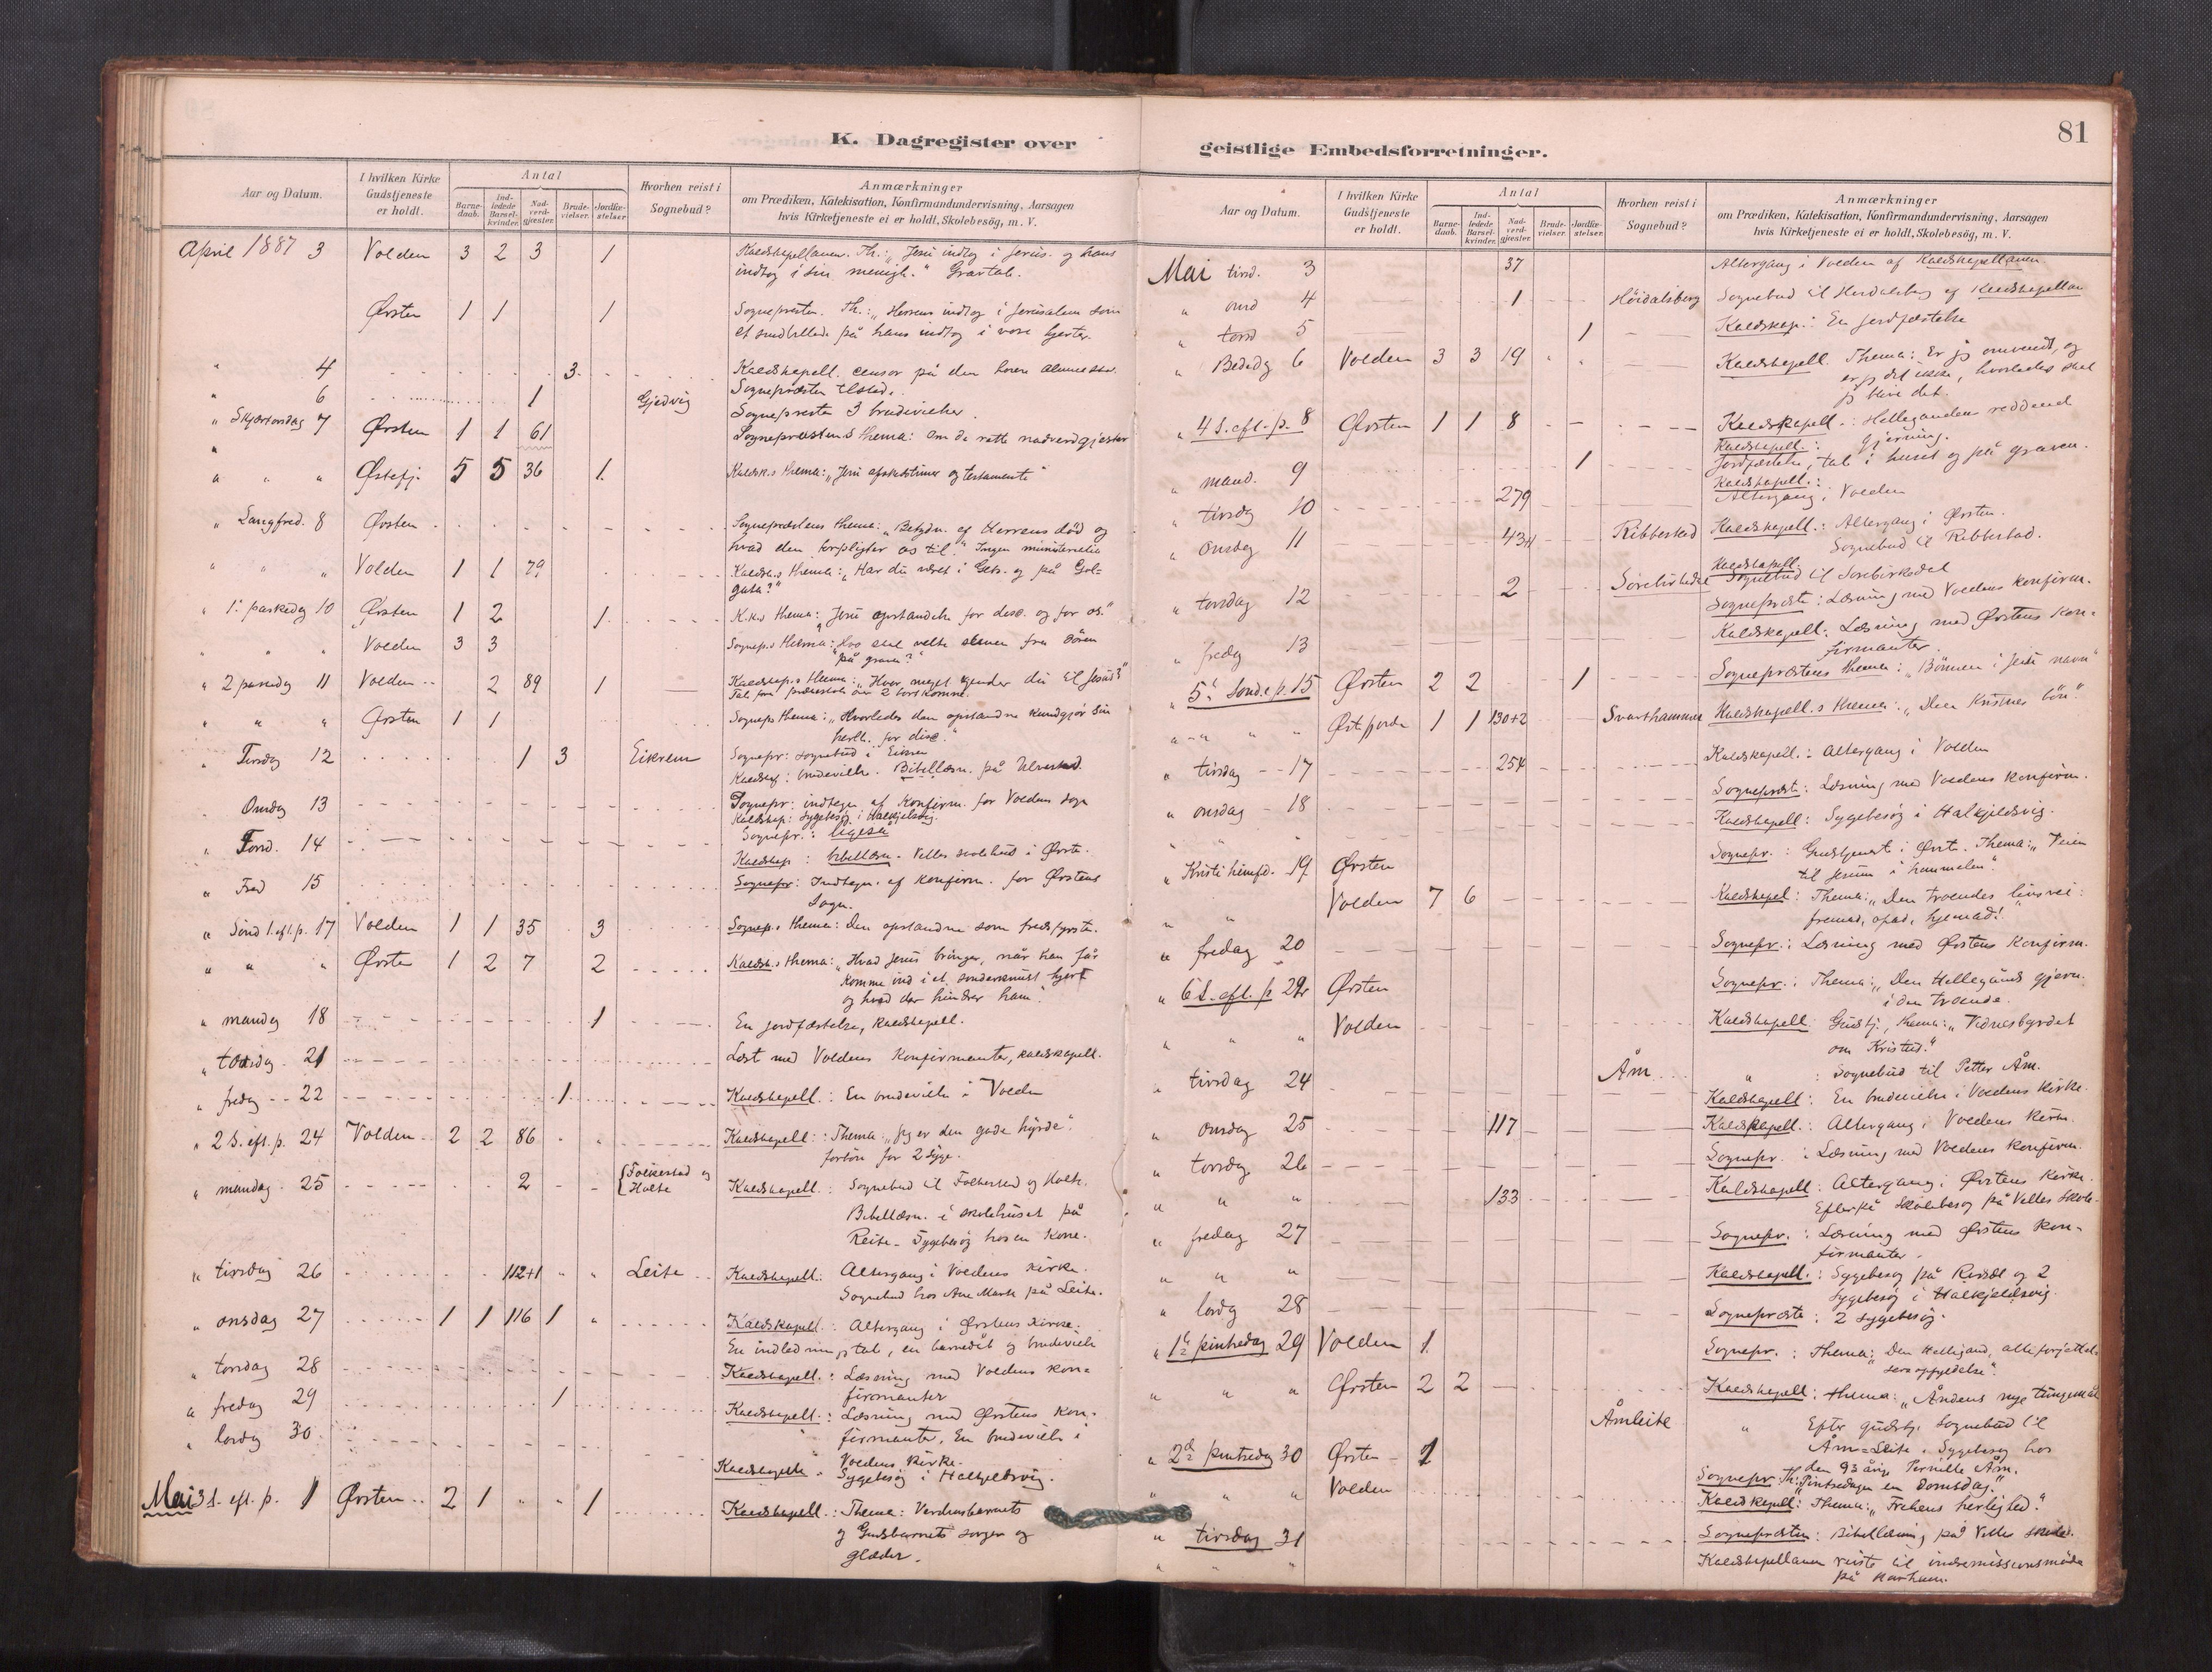 K. Dagregister over
Aar og Datum.
I hvilken Kirke Gudstjeneste er holdt.
Antal
Barne-daab.
Ind-ledede Barsel-kvinder.
Nad-verd-gjester.
Brude-vielser.
Jordfæ-stelser.
Hvorhen reist i Sognebud?
Anmærkninger
om Prædiken, Katekisation, Konfirmandundervisning, Aarsagen
hvis Kirketjeneste ei er holdt, Skolebesøg, m. V.
April 1887 3 Volden 3 2 3 1 Kaldskapellanen. Th.: „Jesu indtog i Jerus. og hans
indtog i sin menigh." Gravtale.
Ørsten 1 1 1 Sognepresten. Th.: „Herrens indtog i Jerusalem som
et sindbillede på hans indtog i vore hjerter.
" 4 3 Kaldskapell. censor på den høiere
" 6 1 Gjedvig Sognepresten
Sognepresten 3 brudevielser.
" Skjærtorsdag 7 Ørsten 1 1 61 Sogneprestens thema: Om de rette nadverdgjester
" " " Østefj. 5 5 36 1. Kaldsk.s thema: „Jesu afskedstime og testamente"
" Langfred. 8 Ørsten Sogneprestens thema: „Betydn. af Herrens død og
hvad den forpligter os til." Ingen ministerialia
" " " Volden 1 1 79 Kaldsk.s thema: „Har du været i Gets. og på Gol=
gata?"
" 1. paskedag 10 Ørsten 1 2 1. K.k.s thema: „Jesu opstandelse for disc. og for os."
" " " Volden 3 3 Sognep.s thema: Hvo skal velte stenen fra døren
på graven?"
" 2 paskedag 11 Volden 2 89 1 Kaldskap.s thema: „Hvor meget kjender du til Jesus?"
Tale fra prækestolen over 2 bortkomne.
" " " Ørsten 1 1 Sogneps thema: „Hvorledes den opstandne kundgjør sin
herli. for disc."
" Tirsdag 12 1 3 Eikrem Sognepr: sognebud i Eikrem
Kaldskap: brudevielse. Bibellæsn. på
" Onsdag 13 Sognepr: indtegn. af konfirm. for Voldens sogn
Kaldskap: Sygebesøg i Halkjelsvig.
" Torsd. 14 Sognepr.: ligeså
Kaldskap: bibellæsn. Velles skolehus i Ørste.
" Fred 15 Sognepr: Indtegn. af konfirm. for Ørstens
Sogn.
" Sønd 1. eft. p. 17 Volden 1 1 35 3 Sognep.s thema: Den opstandne som fredsfyrste.
" " " Ørsten 1 2 7 2 Kaldsk.s thema: „Hvad Jesus bringer, når han får
komme ind i et sønderknust hjerte
og hvad der hindrer ham".
" mandag 18 1 En jordfæstelse, kaldskapell.
" torsdag 21 Læst med Voldens konfirmanter, kaldskapell.
" fredag 22 1 Kaldskapell.: En brudevielse i Volden
" 2 S. eft. p. 24 Volden 2 2 86 Kaldskapell.: Thema: „Jeg er den gode hyrde".
forbøn for 2 syge.
" mandag 25 2 {Folkestad og Holte Kaldskapell.: Sognebud til Folkestad og Holte.
Bibellæsn. i skolehuset på
Reite. Sygebesøg hos en kone.
" tirsdag 26 112+1 Leite Kaldskapell.: Altergang i Voldens kirke.
Sognebud hos Ane Marte på Leite.
" onsdag 27 1 1 116 1 Kaldskapell.: Altergang i Ørstens kirke.
En indledningstale, en barnedåb og brudevielse
" torsdag 28 Kaldskapell.: Læsning med Voldens kon=
firmanter
" fredag 29 1 Kaldskapell.: Læsning med Ørstens kon=
firmanter, En brudevielse i
Voldens kirke.
" lørdag 30 Kaldskapell. Sygebesøg i Halkjelsvig.
Mai 3 S. eft. p. 1 Ørsten 2 1 1 Kaldskapell.: Thema: Verdensbarnets
og Gudsbarnets sorger og
glæder.
geistlige Embedsforretninger.
81
Aar og Datum.
I hvilken Kirke Gudstjeneste er holdt.
Antal
Barne-daab.
Ind-ledede Barsel-kvinder.
Nad-verd-gjester.
Brude-vielser.
Jordfæ-stelser.
Hvorhen reist i Sognebud?
Anmærkninger
om Prædiken, Katekisation, Konfirmandundervisning, Aarsagen
hvis Kirketjeneste ei er holdt, Skolebesøg, m. V.
Mai tirsd. 3 37 Altergang i Volden af Kaldskapellanen.
" onsd 4 1 Høidalsberg Sognebud til Høidalsberg af Kaldskapellan
" torsd 5 1 Kaldskap.: En jordfæstelse
" Bededag 6 Volden 3 3 19 Kaldskapell. Thema: Er jeg omvendt, og
er jeg det ikke, hvorledes skal
jeg blive det.
" 4 S. eft. p. 8 Ørsten 1 1 8 Kaldskapell.: Helligåndens reddende
gjerning.
" mand. 9 1 Kaldskapell.:
Jordfæstelse, tale i huset og på graven.
" tirsdag 10 279 Kaldskapell.:
Altergang i Volden
" onsdag 11 43+1 Ribbestad Kaldskapell.: Altergang i Ørsten.
Sognebud til Ribbestad.
" torsdag 12 2 Sørebirkedal Kaldskapell. Sognebud til Sørebirkedal
Sognepresten: Læsning med Voldens konfirm.
" fredag 13 Kaldskapell.: Læsning med Ørstens kon=
firmanter.
" 5te Sønd. e p. 15 Ørsten 2 2 1 Sogneprestens thema: „Bønnen i Jesu navn"
" " " Østefjorden 1 1 130+2 Svarthammer Kaldskapell.s thema: „Den kristnes bøn."
" tirsdag 17 254 Kaldskapell.: altergang i Volden
Sogneprest: Læsning med Voldens konfirm.
" onsdag 18 Kaldskapell: Sygebesøg i Halkjeldsvig.
" Kristi himfd. 19 Ørsten Sognepr.: Gudstjeneste i Ørst. Thema: „Veien
til Jesum i himmelen."
" " Volden 7 6 Kaldskapel: Thema: „Den troendes livsvei:
fremad, opad, hjemad!"
" fredag 20 Sognepr.: Læsning med Ørstens konfirm.
" 6 S. eft. p 22 Ørsten Sognepr.: Thema: „Den Helligånds gjern.
i den troende.
" " " Volden Kaldskapell: Gudstj., thema: „Vidnesbyrdet
om Kristus."
Åm " : Sognebud til Petter Åm.
" tirsdag 24 Kaldskapell: En brudevielse i Voldens kirke.
" onsdag 25 117 Kaldskapell.: Altergang i Voldens kirke.
" torsdag 26 Sognepr.: Læsning med Voldens konfirm.
" " " 133 Kaldskapell: Altergang i Ørstens kirke.
Efterpå skolebesøg på Velles skole.
" fredag 27 Sognepr.: Læsning med Ørstens kon=
firmanter.
" " " Kaldskapell.: Sygebesøg på og 2
Sygebesøg i Halkjeldsvig.
" lørdag 28 Sognepresten: 2 sygebesøg.
" 1ste pintsedag 29 Volden 1. Sognepr.: Thema: „Den Helligånd, alle forjættel=
sers opfyldelse".
" " " Ørsten 2 2 Kaldskapell: thema: „Åndens nye tungemål
Åmleite " Efter gudstj. sognebud til
Åm=Leite. Sygebesøg hos
den 93 årige Pernille Åm.
" 2den pintsedag 30 Ørsten 1 Sognepr. Th.: „Pintsedagen en domsdag."
" " " Volden Kaldskapell: Thema: „Frelsens herlighed."
" tirsdag 31 Sognepresten: Bibellæsning på Velles skole.
" " " Kaldskapellanen reiste til indremissionsmøde
på